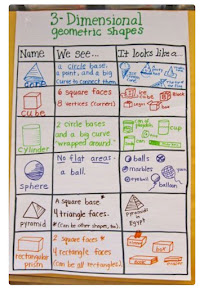 3-Dimensional
geometric shapes
Name
We see...
It looks like a...
cone
a circle base,
a point, and a big
curve to connect them.
cube
6 square faces
8 vertices (corners)
box
cylinder
2 circle bases
and a big curve
"wrapped around."
cup
sphere
No flat areas.
a ball.
balls
marbles
eyeball
yarn
balloon
pyramid
A square base.
4 triangle faces.
(can be other shapes, too)
Pyramids
in
Egypt
rectangular
prism
2 square faces*
4 rectangle faces
(can be all rectangles)
box